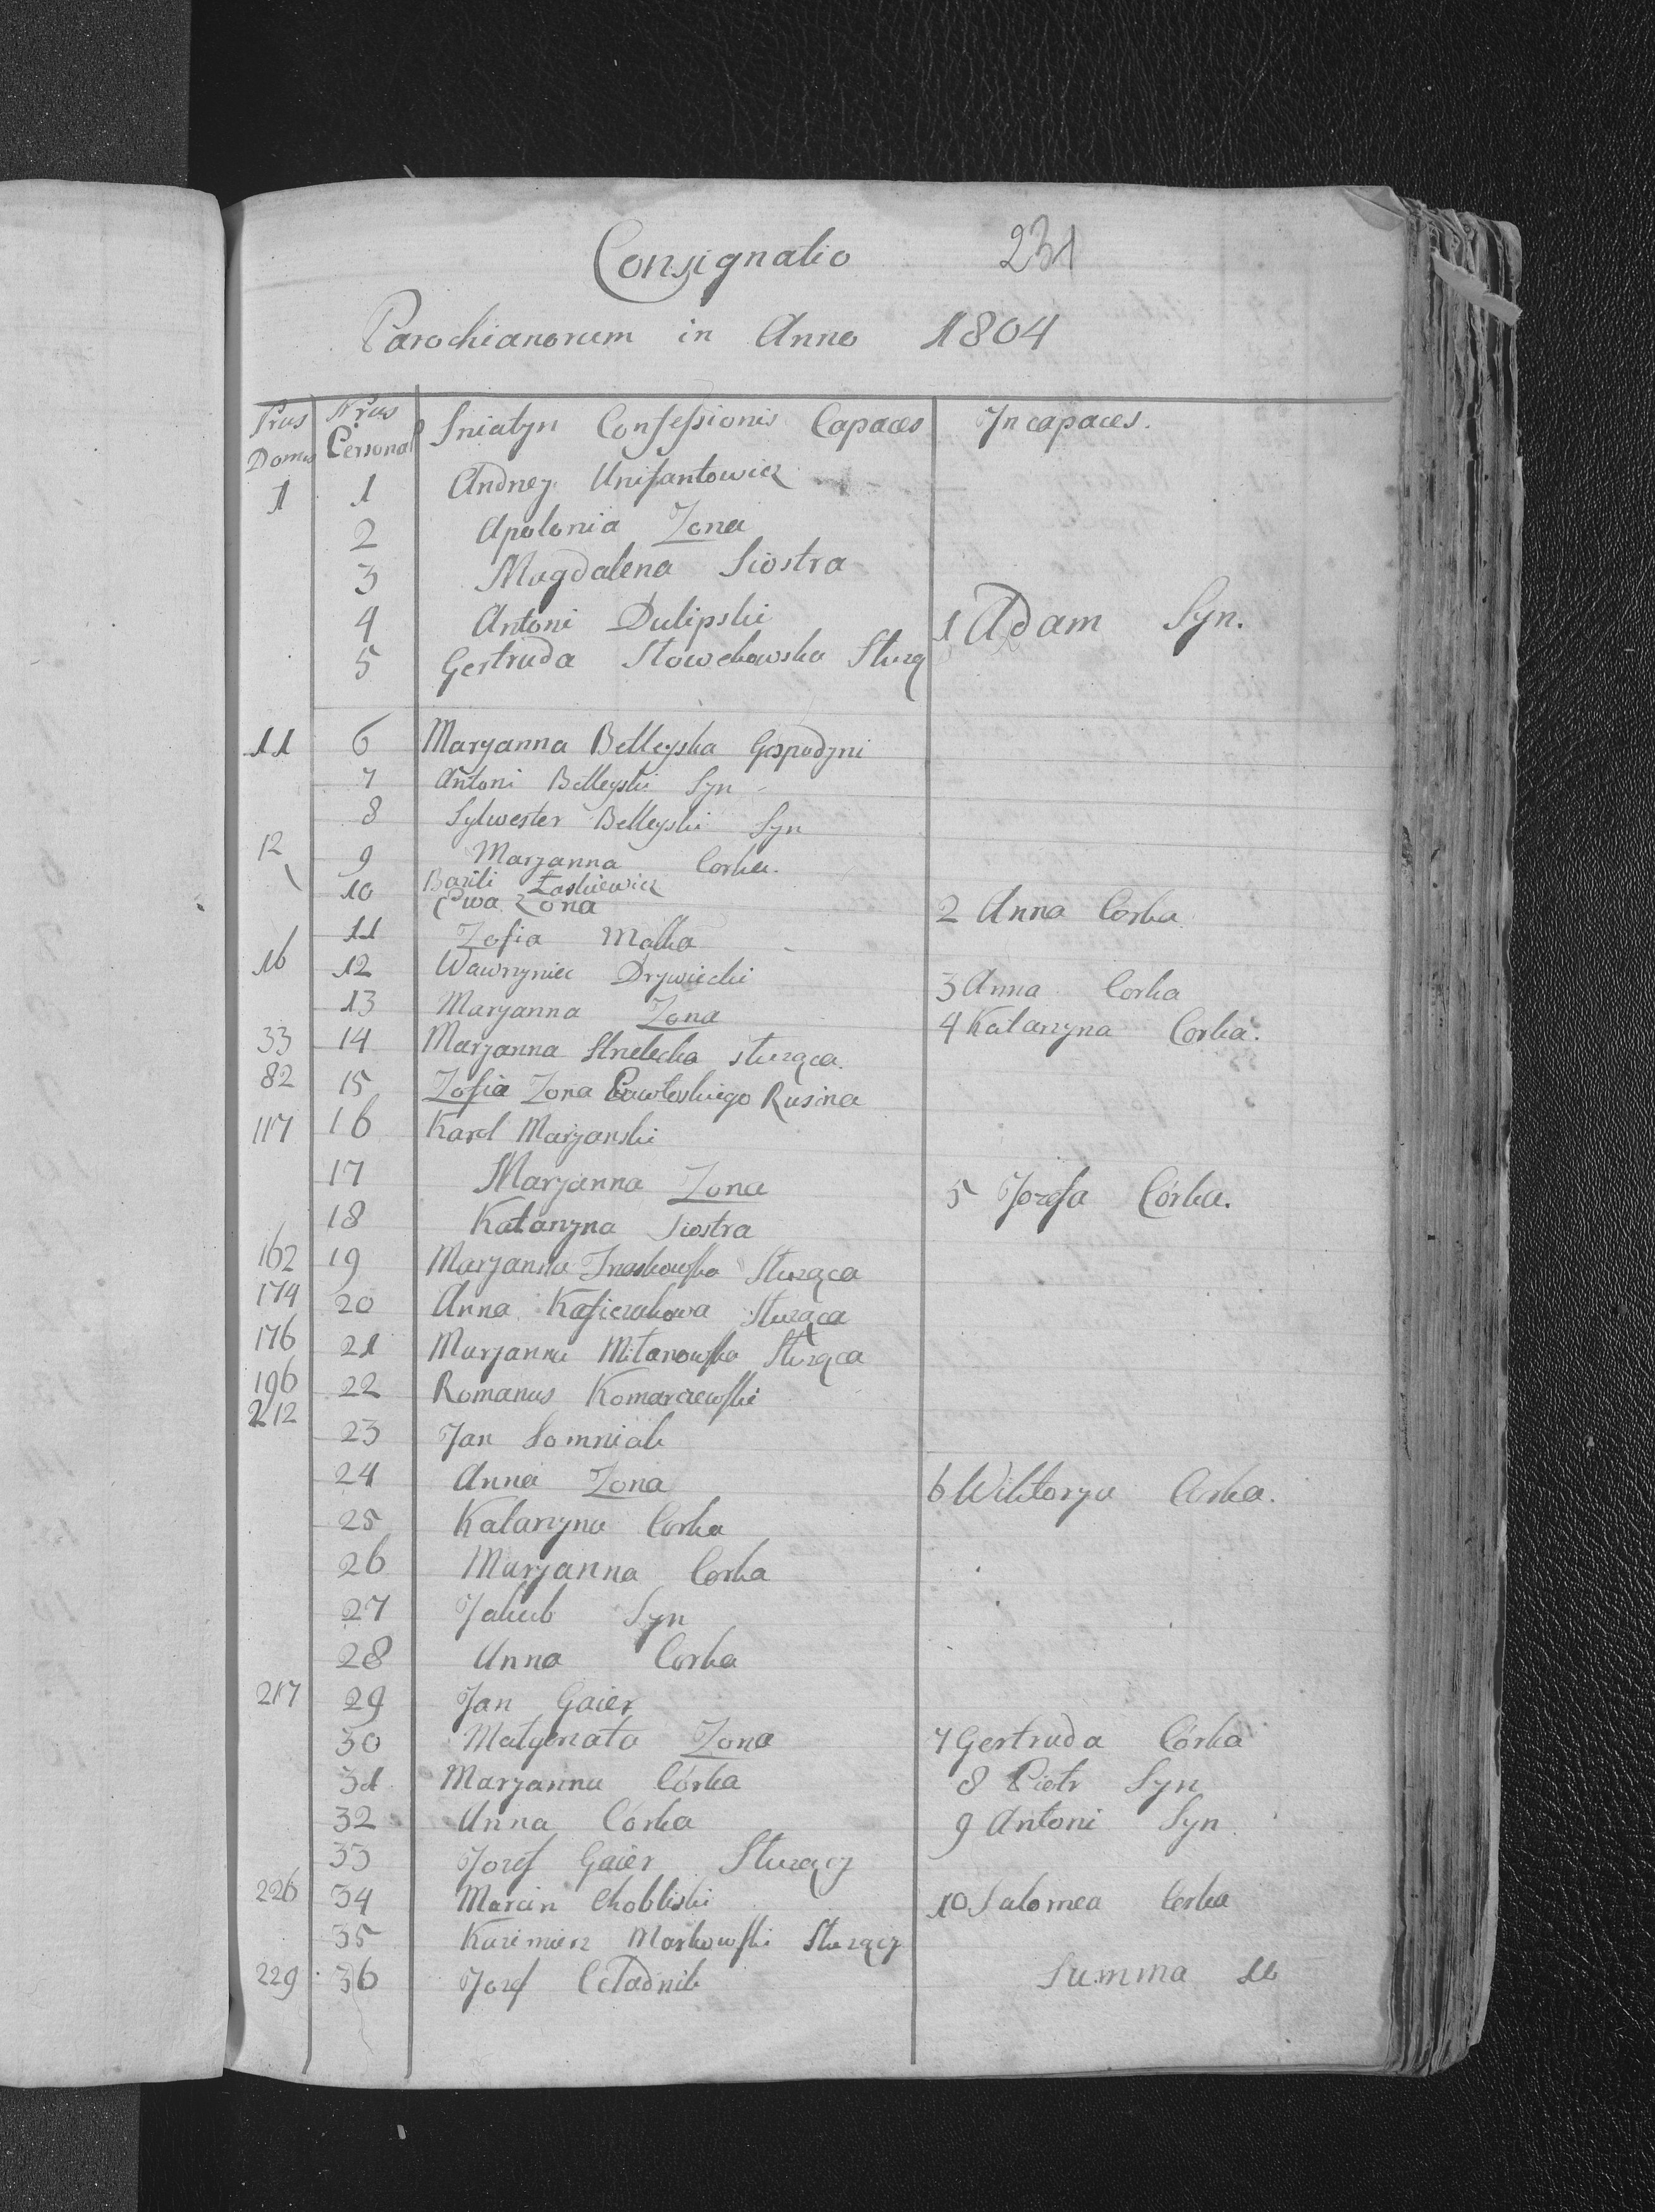 Consignatio 231
Parochianorum in Anno 1804
Nrus Domus Nrus Personal Sniatyn Confessionis Capaces Incapaces.
1 1 Andrzej Unifantowicz
2 Apolonia Zona
3 Magdalena Siostra
4 Antoni Dulipski 1 Adam Syn.
5 Gertruda Słowekowska Służą
11 6 Maryanna Belleyska Gospodyni
7 Antoni Belleyski Syn
8 Sylwester Belleyski Syn
12 9 Maryanna Corka.
10 Bazili Łaskiewicz
Ewa Zona 2 Anna Corka
11 Zofia Matka
16 12 Wawrzyniec Drzywiecki 3 Anna Corka
13 Maryanna Zona 4 Katarzyna Corka.
33 14 Maryanna Strzelecka służąca.
82 15 Zofia Zona Pawłoskiego Rusina
117 16 Karol Maryanski
17 Maryanna Zona 5 Jozefa Córka.
18 Katarzyna Siostra
162 19 Maryanna Służąca
174 20 Anna Służąca
176 21 Maryanna Milanowska Służąca
196 22 Romanus Komarczewski
212
23 Jan Somniak
24 Anna Zona 6 Wiktorya Corka.
25 Katarzyna Corka
26 Maryanna Corka
27 Jakub Syn
28 Anna Corka
217 29 Jan Gaier
30 Małgorzata Zona 7 Gertruda Córka
31 Maryanna Córka 8 Piotr Syn
32 Anna Córka 9 Antoni Syn
33 Jozef Gaier Służący
226 34 Marcin Chobliski 10 Salomea Corka
35 Kazimierz Markowski Służący
229 36 Jozef Celadnik Summa 10